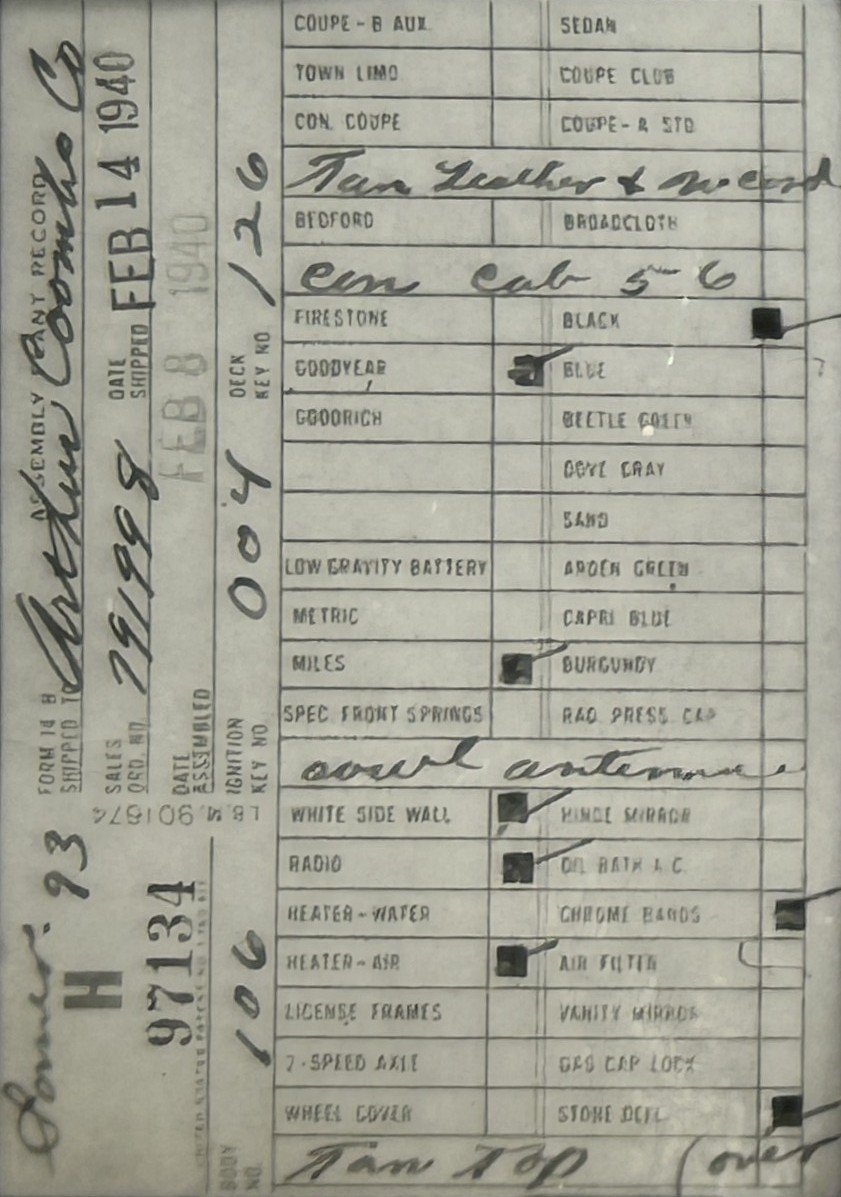 COUPE - B AUX. SEDAN
TOWN LIMO. COUPE CLUB
CON. COUPE COUPE - A STD
Tan Leather &
BEDFORD BROADCLOTH
Con Cab 5-6
FIRESTONE BLACK
GOODYEAR BLUE
GOODRICH BEETLE GREEN
DOVE GRAY
SAND
LOW GRAVITY BATTERY ARDEN GREEN
METRIC CAPRI BLUE
MILES BURGUNDY
SPEC. FRONT SPRINGS RAD. PRESS. CAP
cowl antenna
WHITE SIDE WALL HINGE MIRROR
RADIO OIL BATH A.C.
HEATER - WATER CHROME BANDS
HEATER - AIR AIR FILTER
LICENSE FRAMES VANITY MIRROR
2-SPEED AXLE GAS CAP LOCK
WHEEL COVER STONE DEFL.
Tan Top (over
ASSEMBLY PLANT RECORD
FORM 14 B
SHIPPED TO Arthur Coombs Co
SALES ORD. NO. 791998 DATE SHIPPED FEB 14 1940
DATE ASSEMBLED FEB 8 1940
IGNITION KEY NO. 004 DECK KEY NO 126
93
H
97134
BODY NO. 106